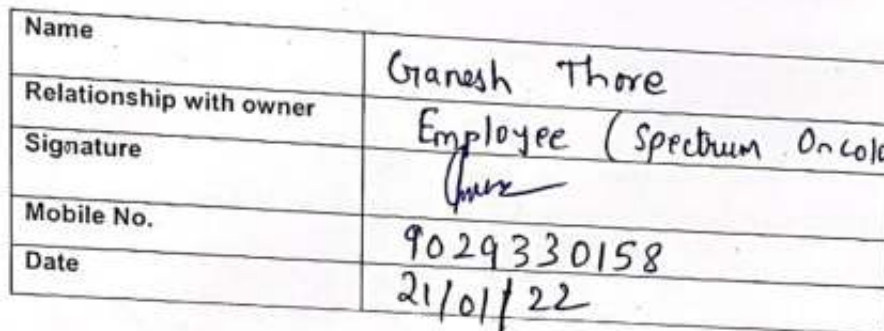 Name Ganesh Thore
Relationship with owner Employee (Spectrum Oncolo
Signature
Mobile No. 9029330158
Date 21/01/22